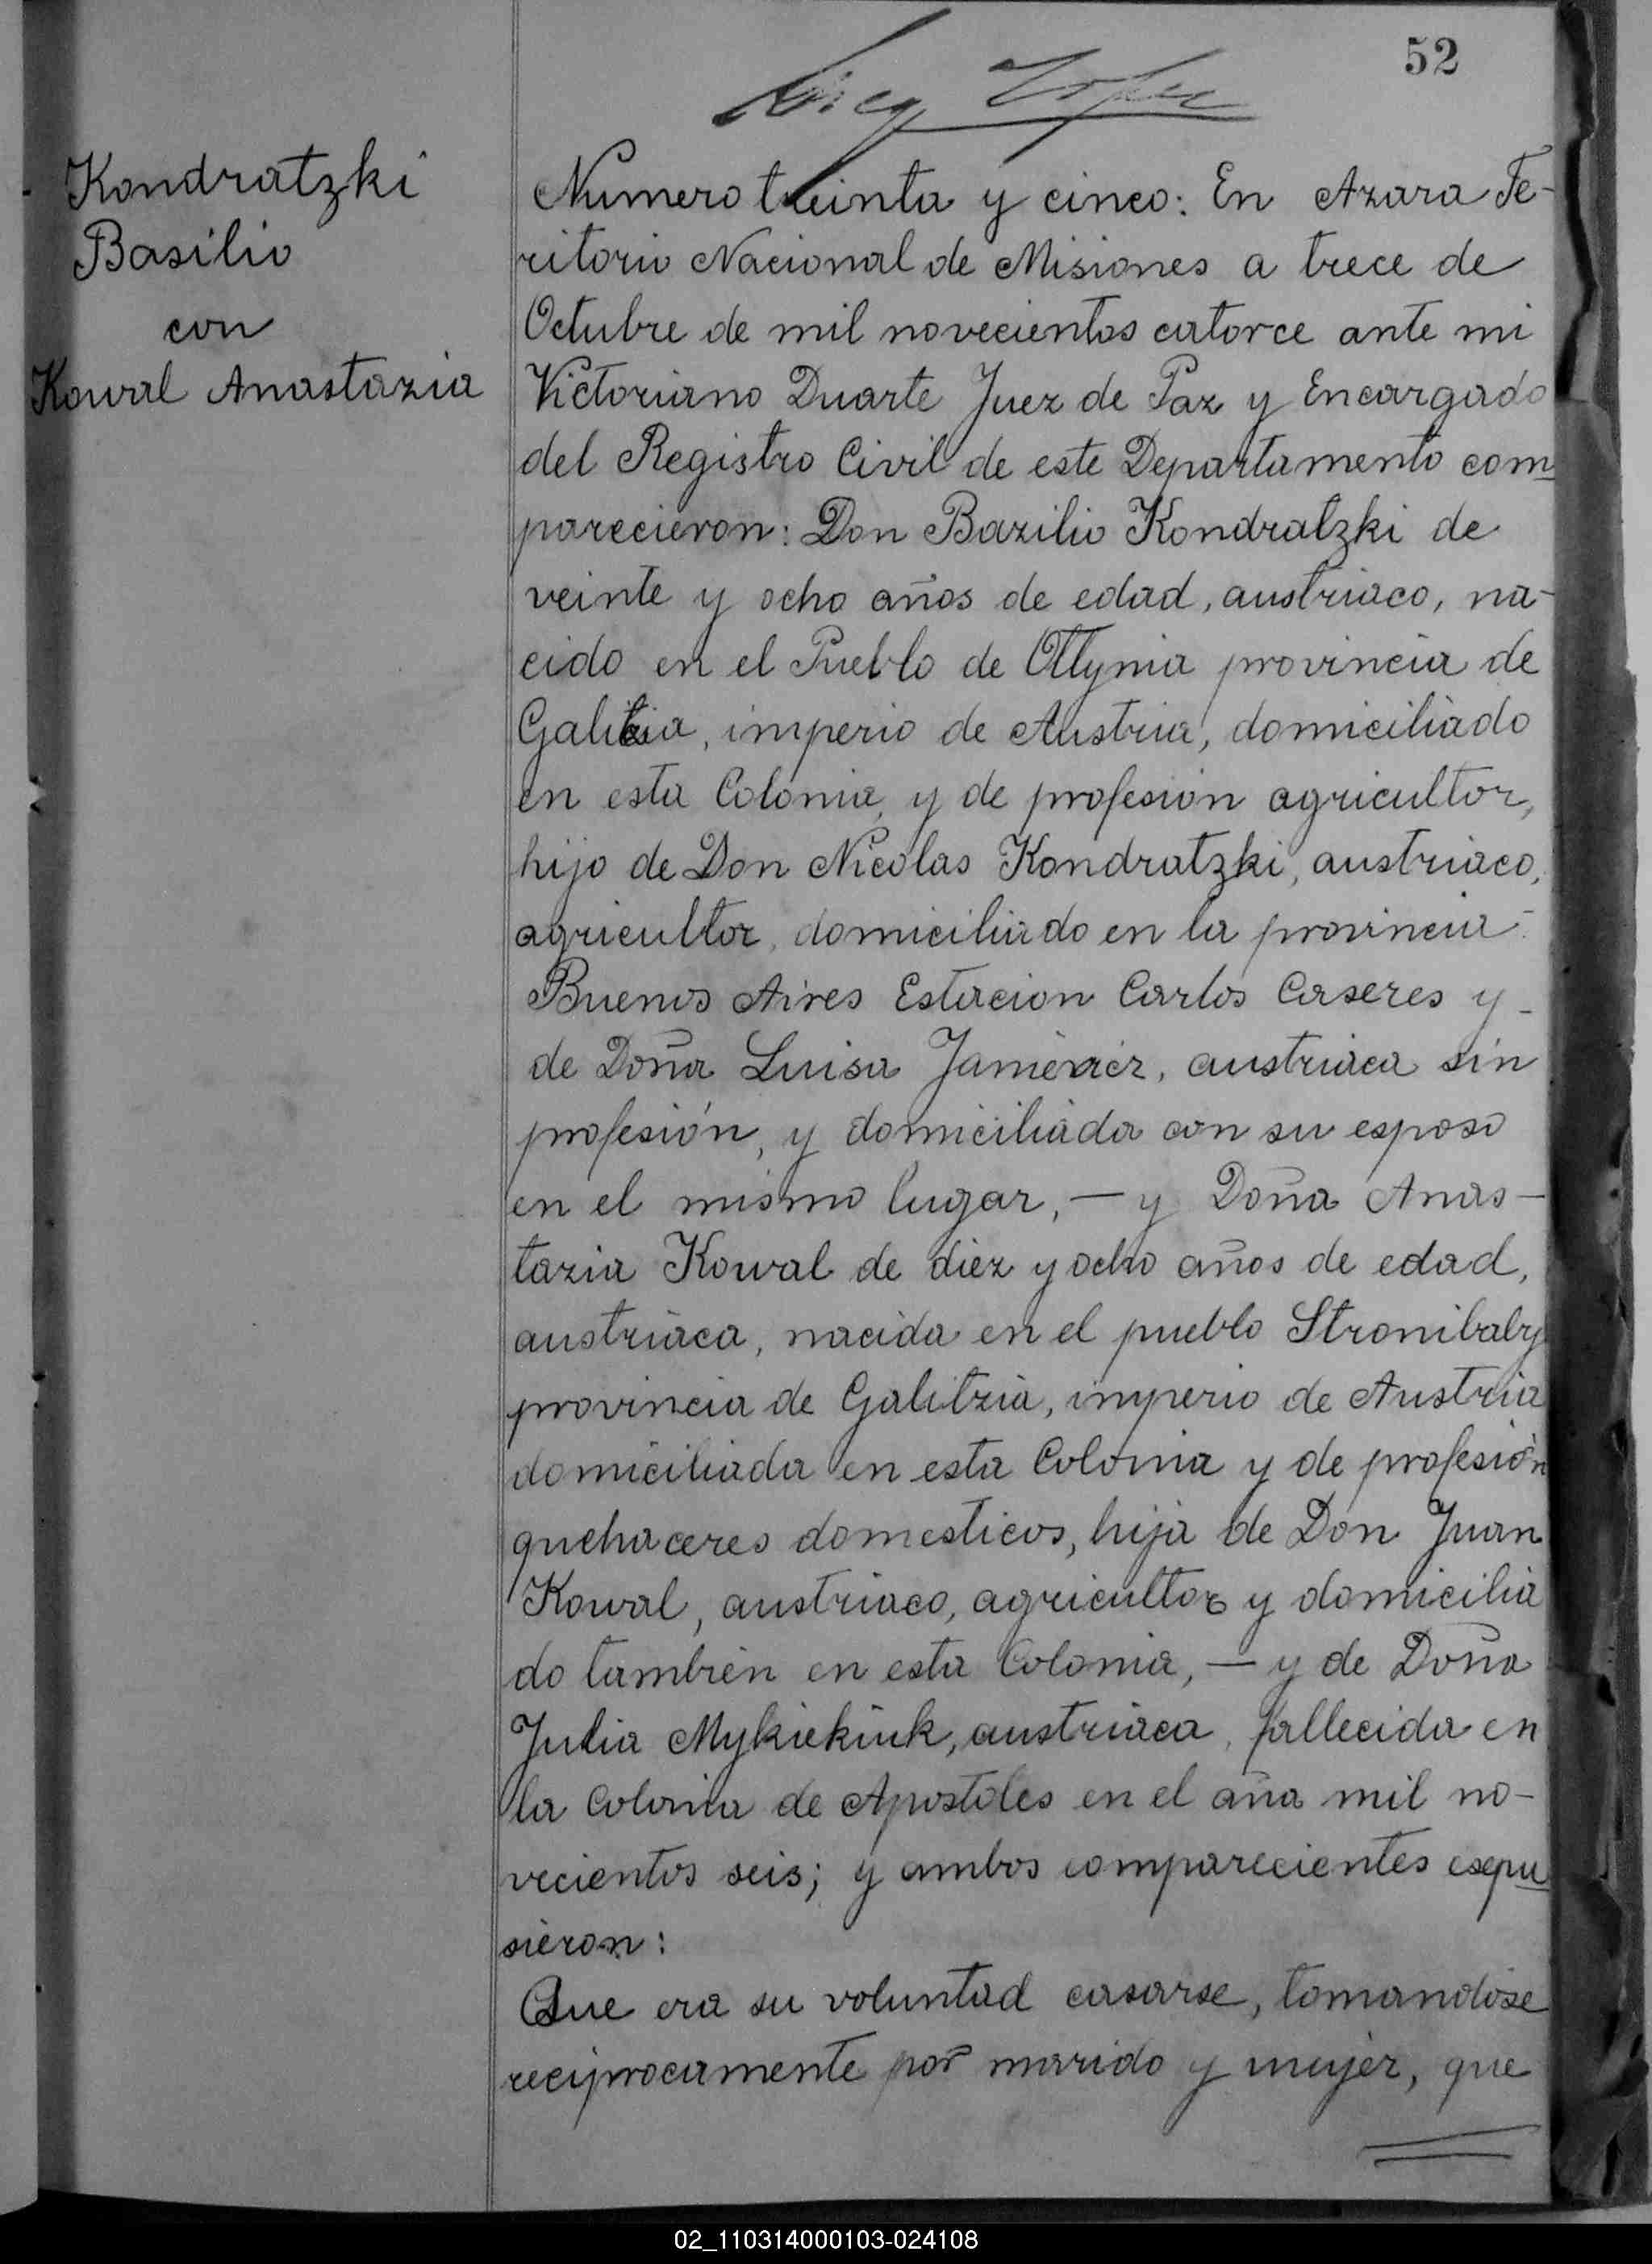 52
Kondratzki
Basilio
con
Kowal Anastazia
Numero treinta y cinco: En Azara Te-
ritorio Nacional de Misiones a trece de
Octubre de mil novecientos catorce ante mi
Victoriano Duarte Juez de Paz y Encargado
del Registro Civil de este Departamento com
parecieron: Don Bazilio Kondratzki de
veinte y ocho años de edad, austriaco, na-
cido en el Pueblo de Ottynia provincia de
Galitzia, imperio de Austria, domiciliado
en esta Colonia, y de profesion agricultor,
hijo de Don Nicolas Kondratzki, austriaco,
agricultor, domiciliado en la provincia
Buenos Aires Estacion Carlos Caseres y
de Doña Luisa austriaca sin
profesión, y domiciliada con su esposo
en el mismo lugar, — y Doña Anas-
tazia Kowal de diez y ocho años de edad,
austriaca, nacida en el pueblo Stronibaby
provincia de Galitzia, imperio de Austria
domiciliada en esta Colonia y de profesión
quehaceres domesticos, hija de Don Juan
Kowal, austriaco, agricultor y domicilia
do tambien en esta Colonia, — y de Doña
Julia Mykiekiuk, austriaca, fallecida en
la Colonia de Apostoles en el aña mil no-
vecientos seis; y ambos comparecientes expu
sieron:
Que era su voluntad casarse, tomandose
reciprocamente por marido y mujer, que
02_110314000103-024108